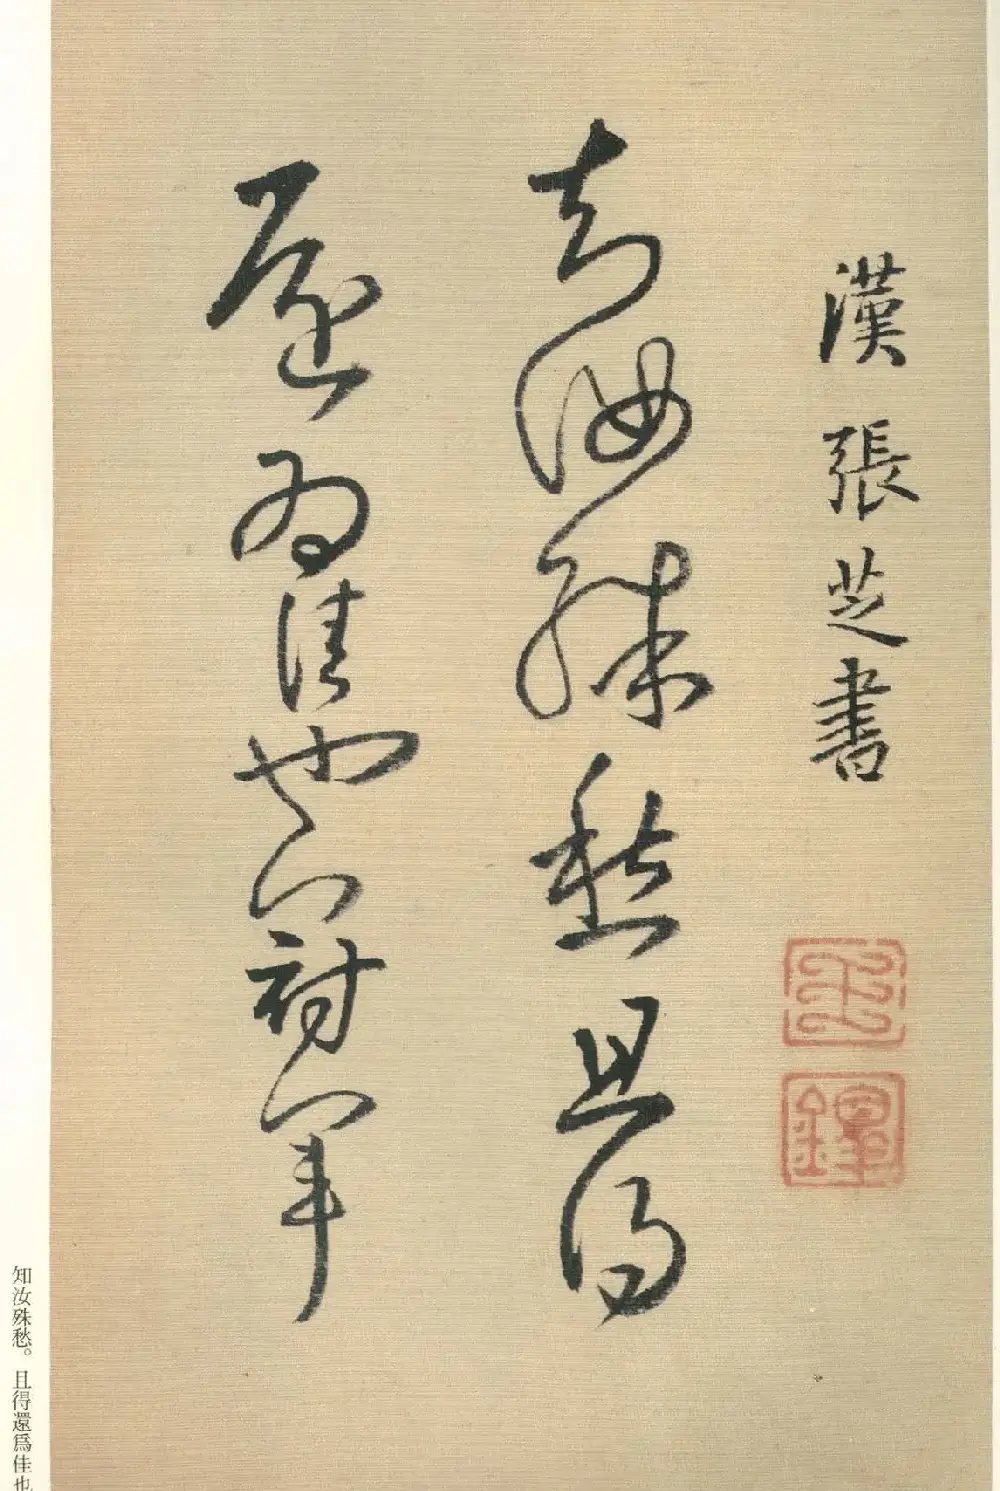 漢張芝書
王
鐸
知汝殊愁且得
還為佳也冠軍
知汝殊愁。且得還爲佳也